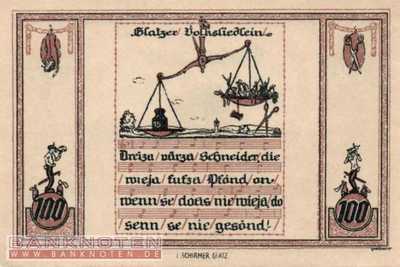 Glatzer Volksliedlein
15
Dreiza/värza/Schneider, die
wieja/fufza/Pfånd/on-
wenn/se/doas/nie/wieja/do
senn/se/nie/gesönd!
100
100
J. SCHIRMER GLATZ
BANKNOTEN
WWW.BANKNOTEN.DE